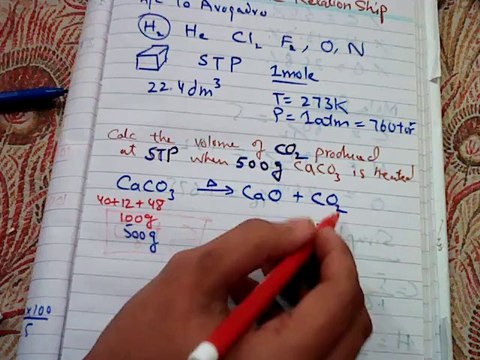 Relation Ship
A/c to Avogadro
H₂ He Cl₂ F₂, O, N
STP 1mole
22.4dm³
T = 273K
P = 1atm = 760tor
Calc the volume of CO₂ produced
at STP when 500g CaCO₃ is heated
CaCO₃ —Δ→ CaO + CO₂
40+12+48
100g
500g
x100
5